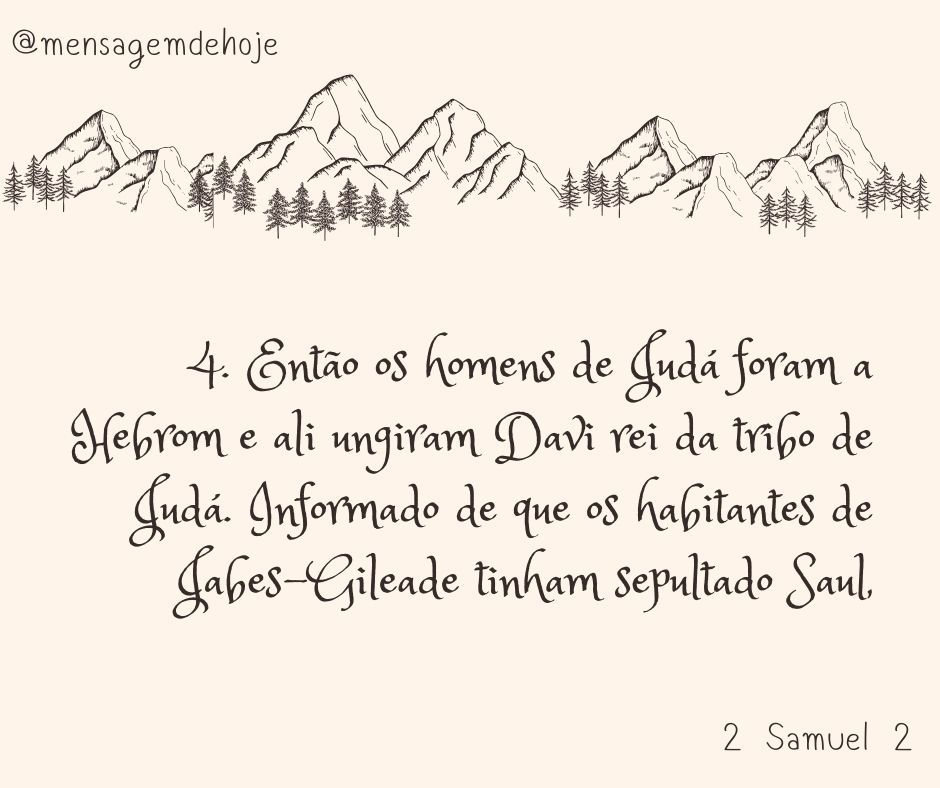 @mensagemdehoje
4. Então os homens de Judá foram a
Hebrom e ali ungiram Davi rei da tribo de
Judá. Informado de que os habitantes de
Jabes-Gileade tinham sepultado Saul,
2 Samuel 2